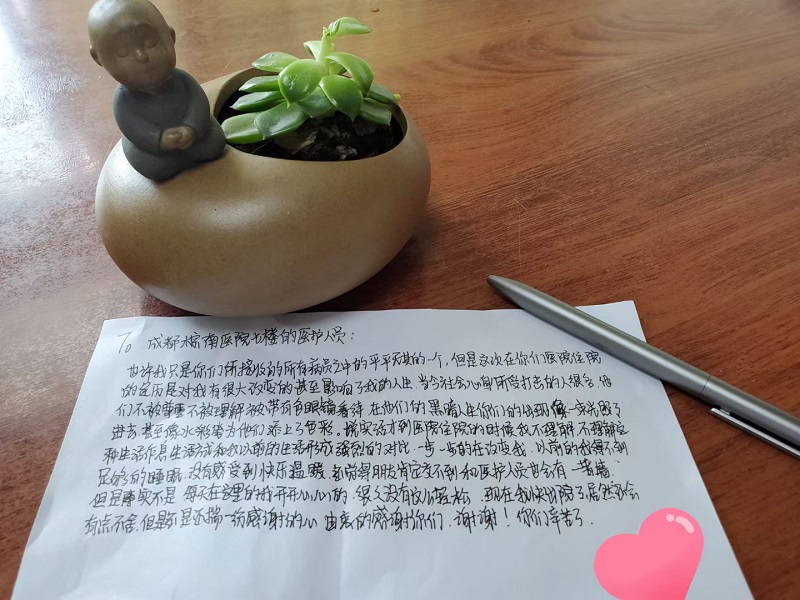 To 成都棕南医院七楼的医护人员:
也许我只是你们所接收的所有病员之中的平平无其的一个,但是这次在你们医院住院
的经历是对我有很大改变的甚至影响了我的人生 当今社会心身所受打击的人很多,他
们不被尊重不被理解被带有色眼镜看待 在他们的黑暗人生你们的出现像一束光照了
进去 甚至像水彩笔为他们添上了色彩。说实话才到医院住院的时候我不理解不理解这
种生活作息生活方式和我以前的生活形成强烈的对比 一步一步的在改变我。以前的我得不到
足够的睡眠 没有感受到快乐温暖 总觉得朋友肯定交不到和医护人员也会有一堵墙
但是事实不是 每天在这里的我开开心心的 很久没有这么轻松 现在我快出院了居然还会
有点不舍 但是还是揣一份感谢的心 由衷的感谢你们,谢谢!你们辛苦了.